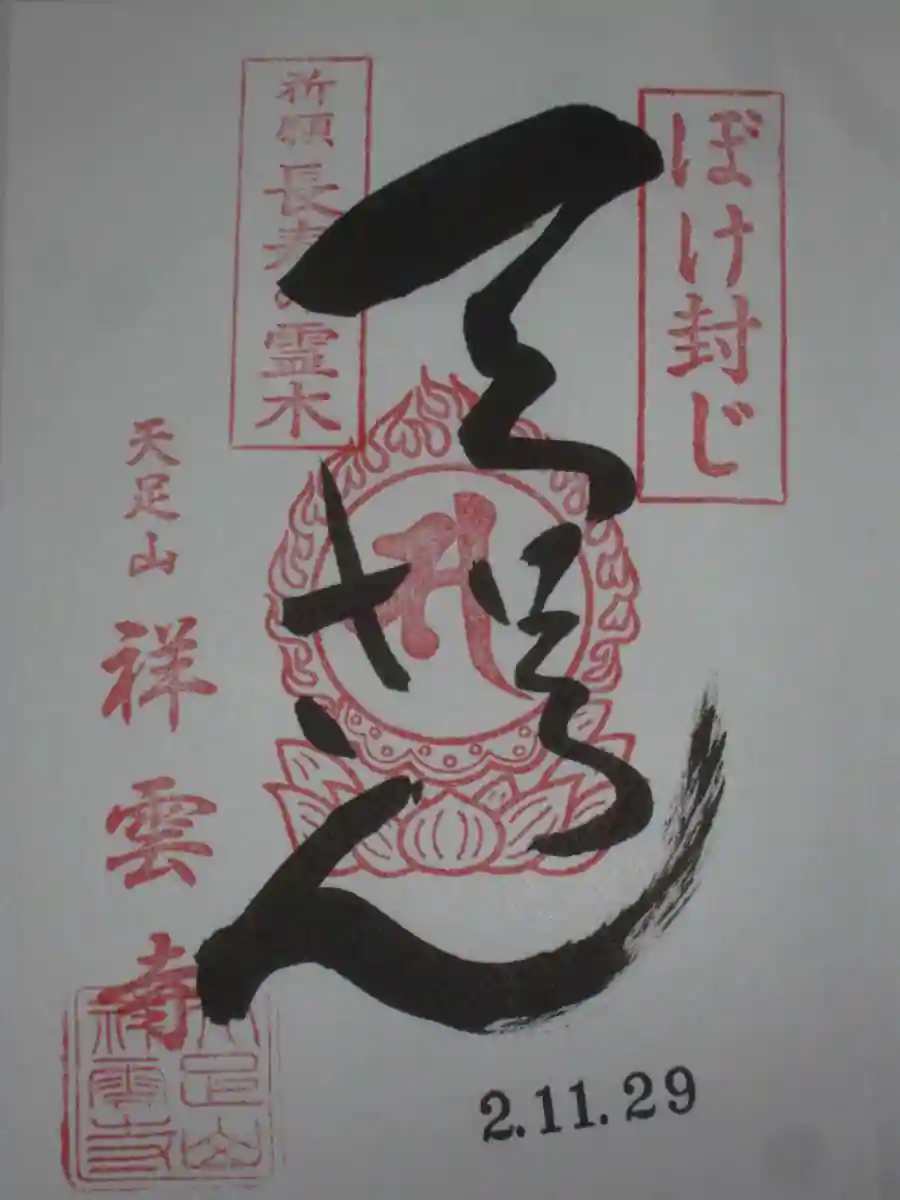 ぼけ封じ
祈願 長寿の霊木
天足山 祥雲寺
天足山
祥雲寺
2.11.29